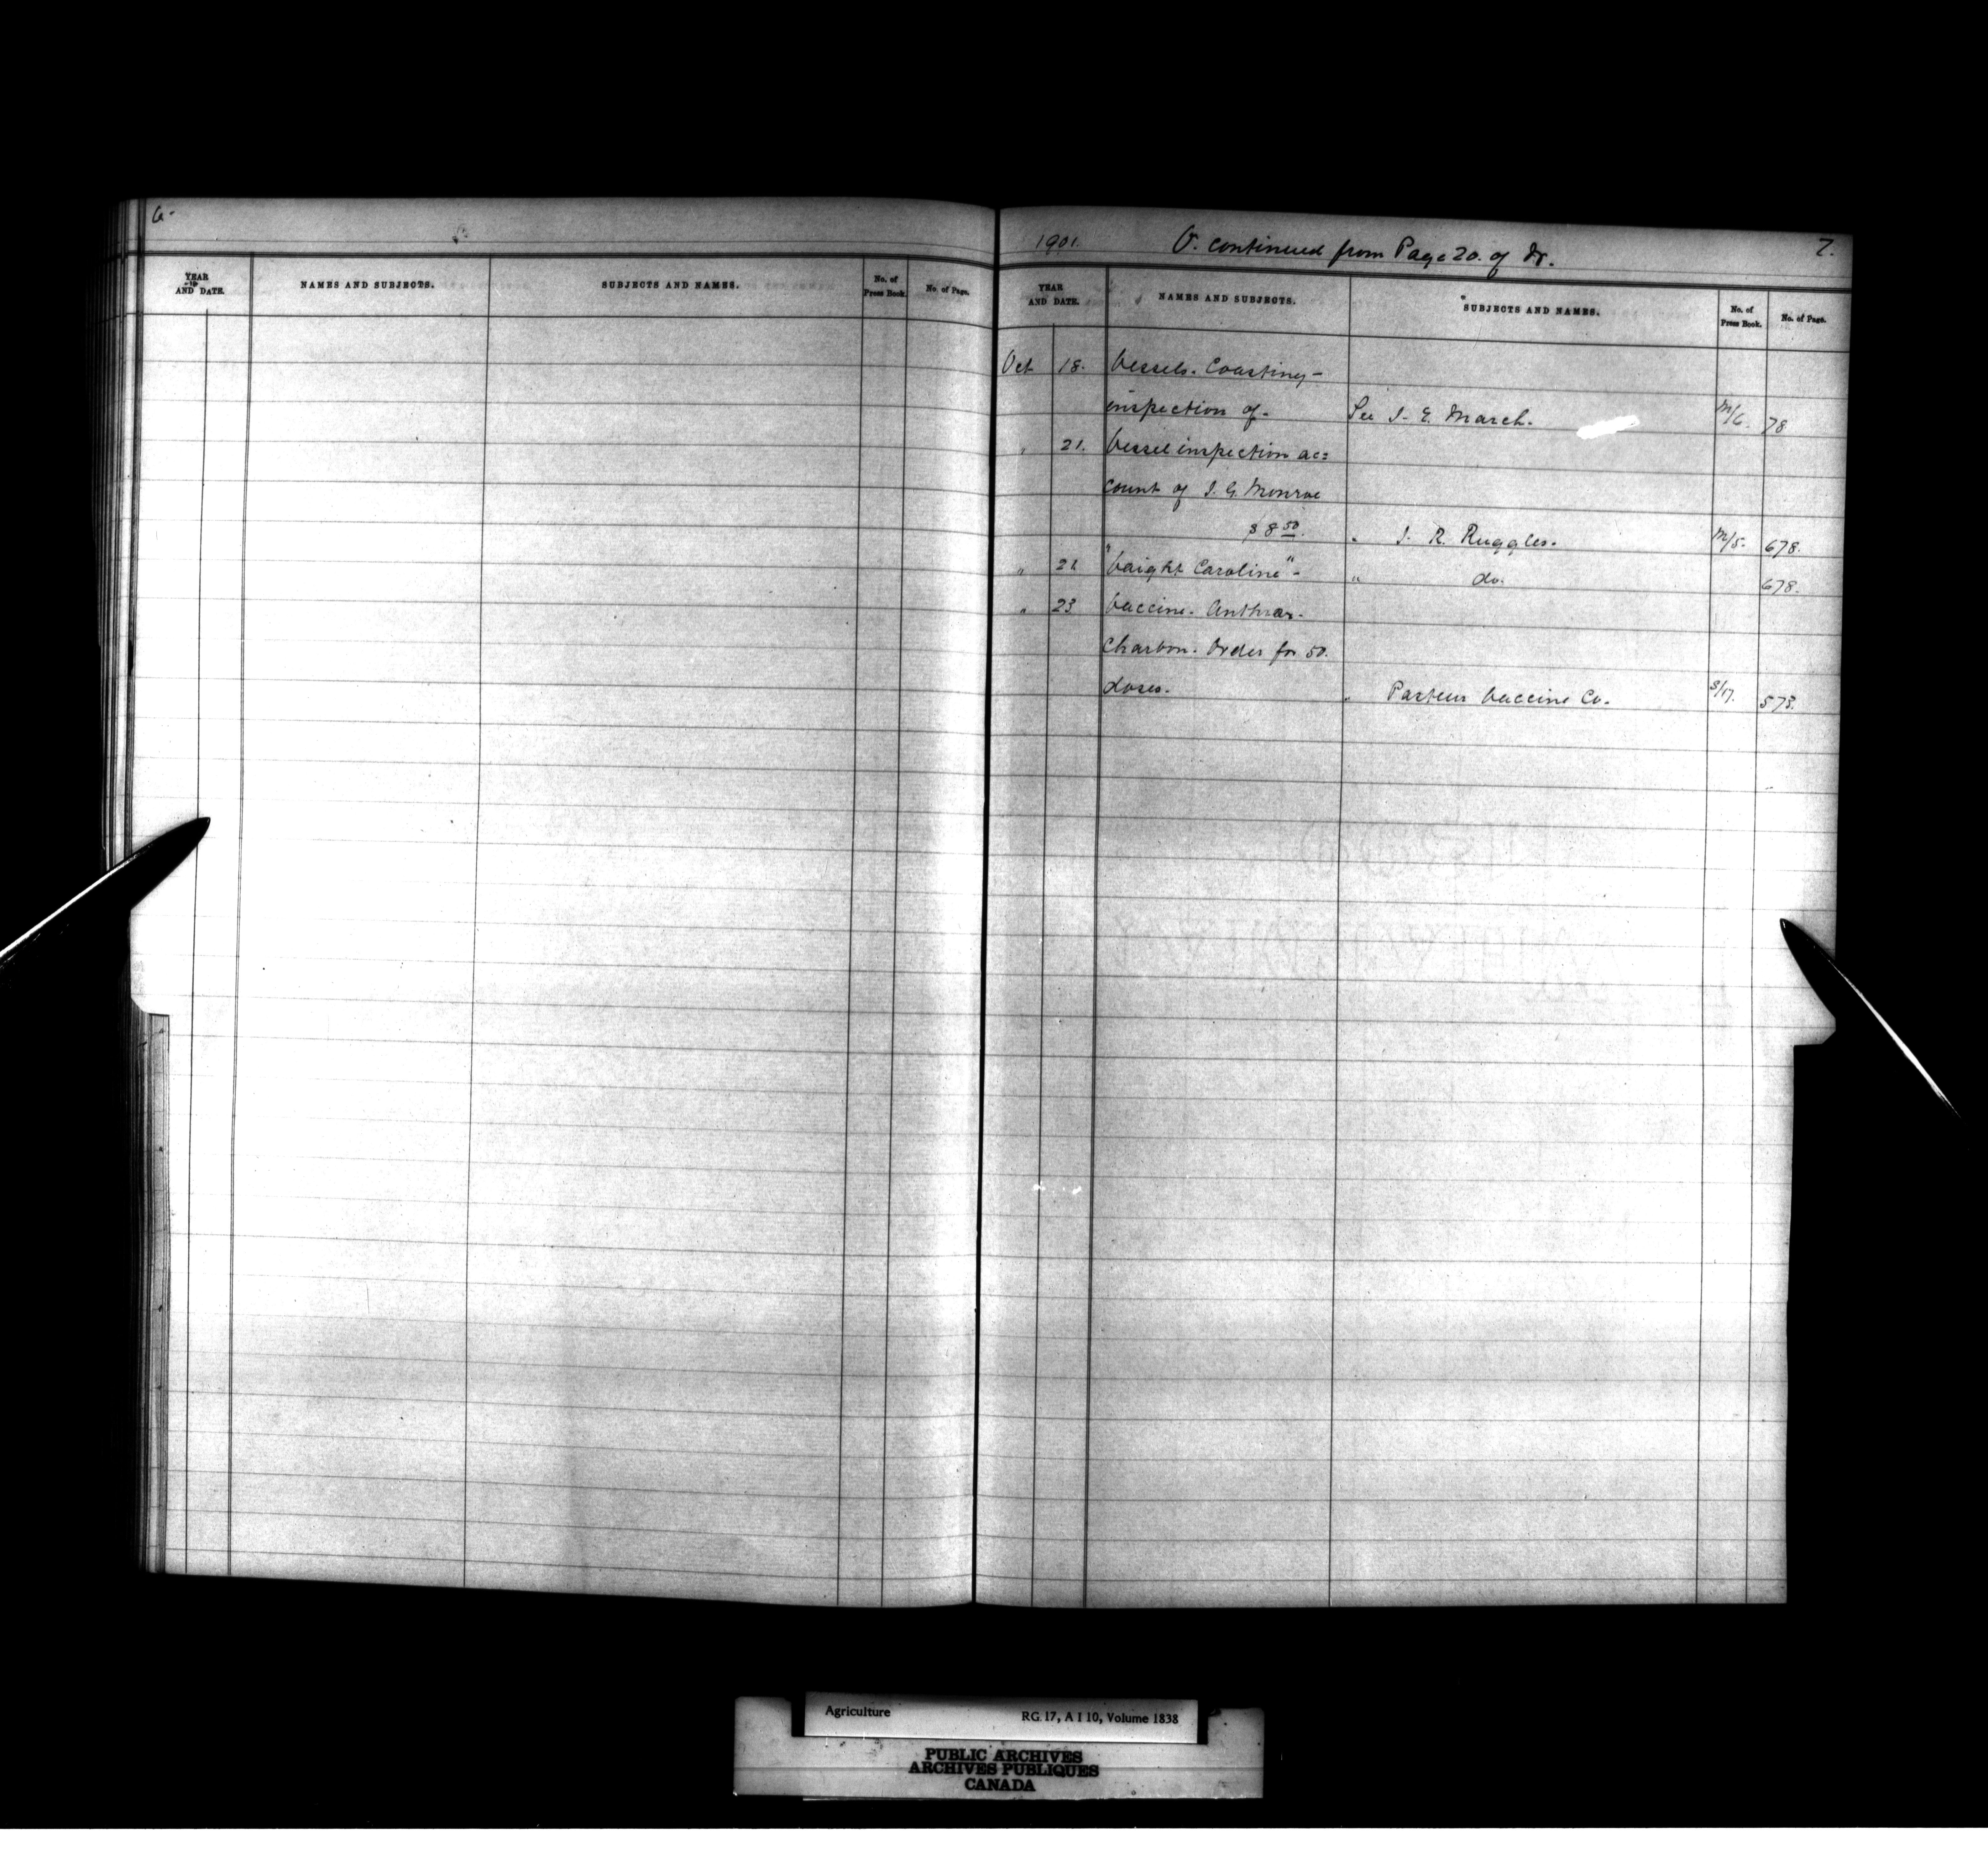 6.
YEAR AND DATE. NAMES AND SUBJECTS. SUBJECTS AND NAMES. No. of Press Book. No. of Page.
1901. V. continued from Page 20. of Dr. 7.
YEAR AND DATE. NAMES AND SUBJECTS. SUBJECTS AND NAMES. No. of Press Book. No. of Page.
Oct 18. Vessels. Coasting-
inspection of. See J. E. March. M/6. 78
" 21. Vessel inspection ac=
count of J. G. Monroe
$8 50. " J. R. Ruggles. M/5. 678.
" 21 "Vaight Caroline" - " do. 678.
" 23 Vaccine. Anthrax.
Charbon. Order for 50.
doses. " Pasteur Vaccine Co. S/17. 573.
Agriculture RG 17, A I 10, Volume 1838
PUBLIC ARCHIVES
ARCHIVES PUBLIQUES
CANADA